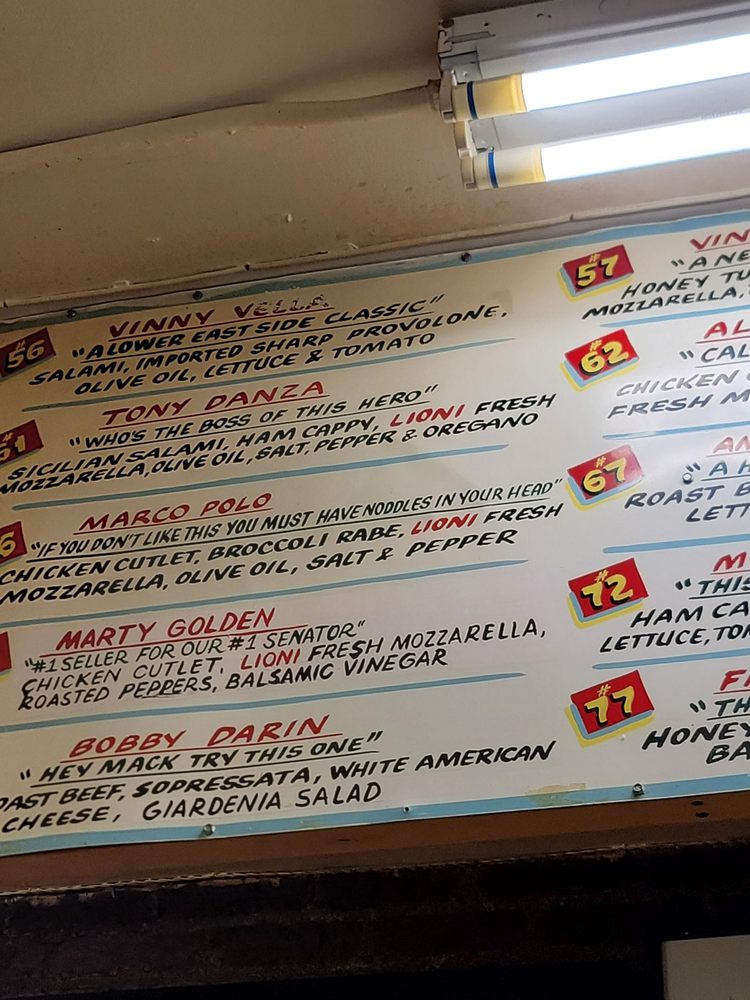 #56 VINNY VELLA
"A LOWER EAST SIDE CLASSIC"
SALAMI, IMPORTED SHARP PROVOLONE,
OLIVE OIL, LETTUCE & TOMATO
TONY DANZA
"WHO'S THE BOSS OF THIS HERO"
SICILIAN SALAMI, HAM CAPPY, LIONI FRESH
MOZZARELLA, OLIVE OIL, SALT, PEPPER & OREGANO
MARCO POLO
"IF YOU DON'T LIKE THIS YOU MUST HAVE NODDLES IN YOUR HEAD"
CHICKEN CUTLET, BROCCOLI RABE, LIONI FRESH
MOZZARELLA, OLIVE OIL, SALT & PEPPER
MARTY GOLDEN
"#1 SELLER FOR OUR #1 SENATOR"
CHICKEN CUTLET, LIONI FRESH MOZZARELLA,
ROASTED PEPPERS, BALSAMIC VINEGAR
BOBBY DARIN
"HEY MACK TRY THIS ONE"
OAST BEEF, SOPRESSATA, WHITE AMERICAN
CHEESE, GIARDENIA SALAD
#57 VIN
"A NE
HONEY TU
MOZZARELLA,
#62 AL
"CAL
CHICKEN
FRESH M
#67 AN
"A H
ROAST B
LETT
#72 M
"THIS
HAM CA
LETTUCE, TOM
#77 F
"TH
HONEY
BA